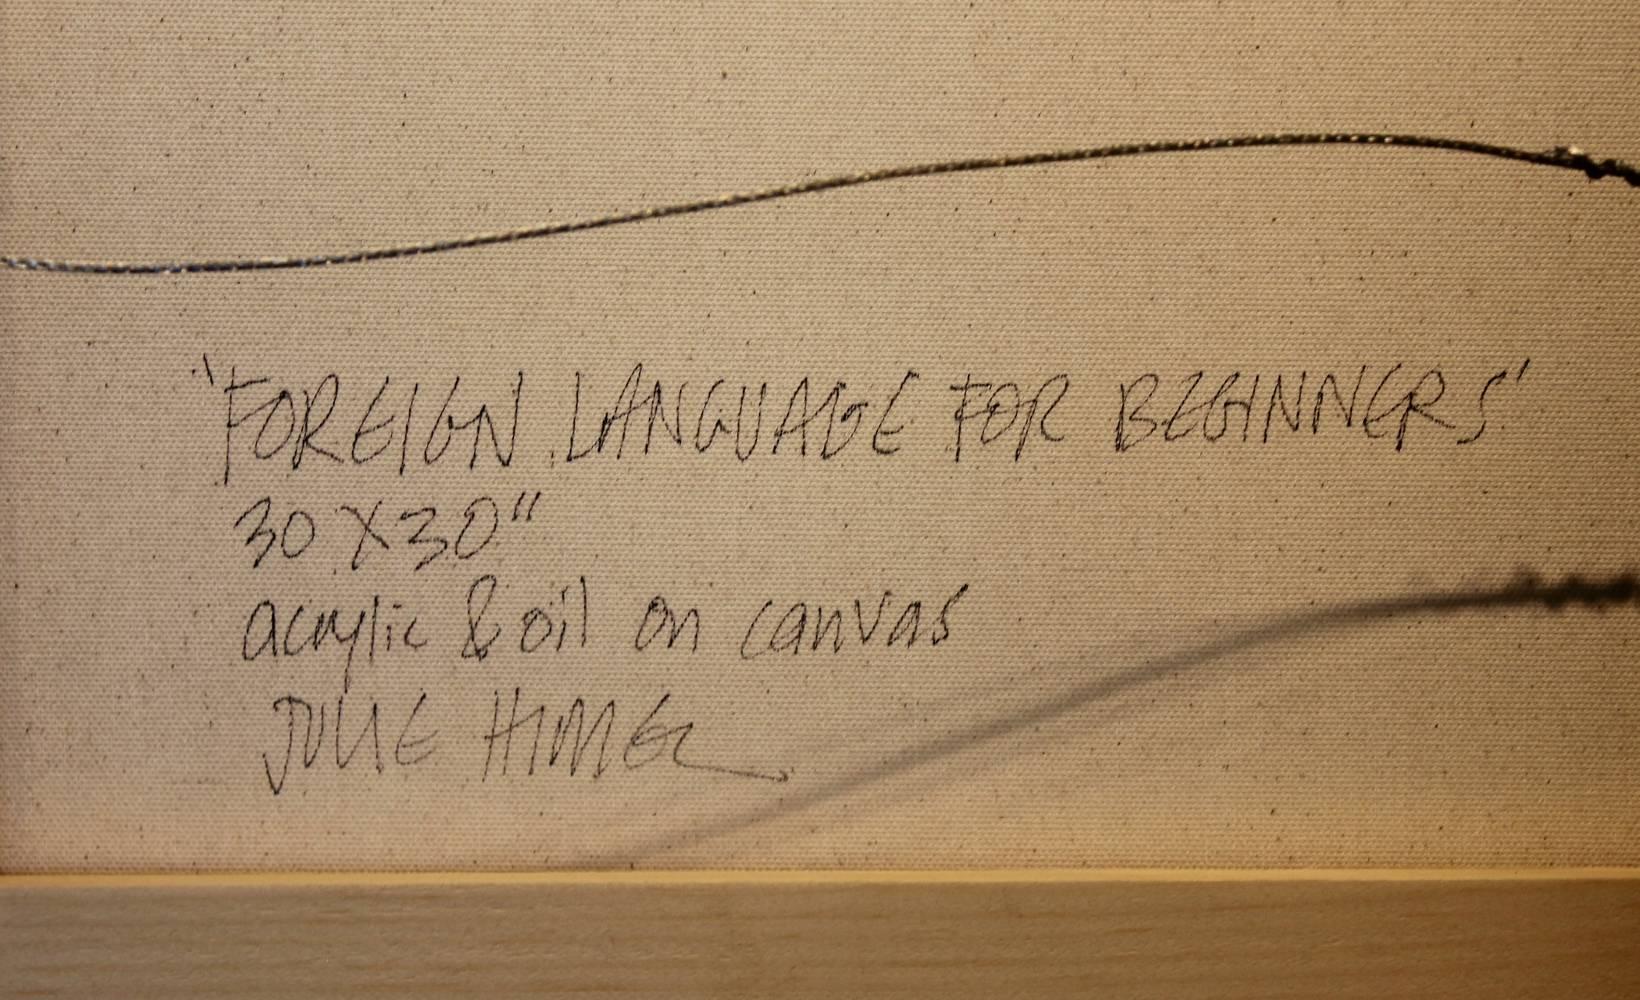 'FOREIGN LANGUAGE FOR BEGINNERS'
30 X 30"
acrylic & oil on canvas
JULIE HIMEL